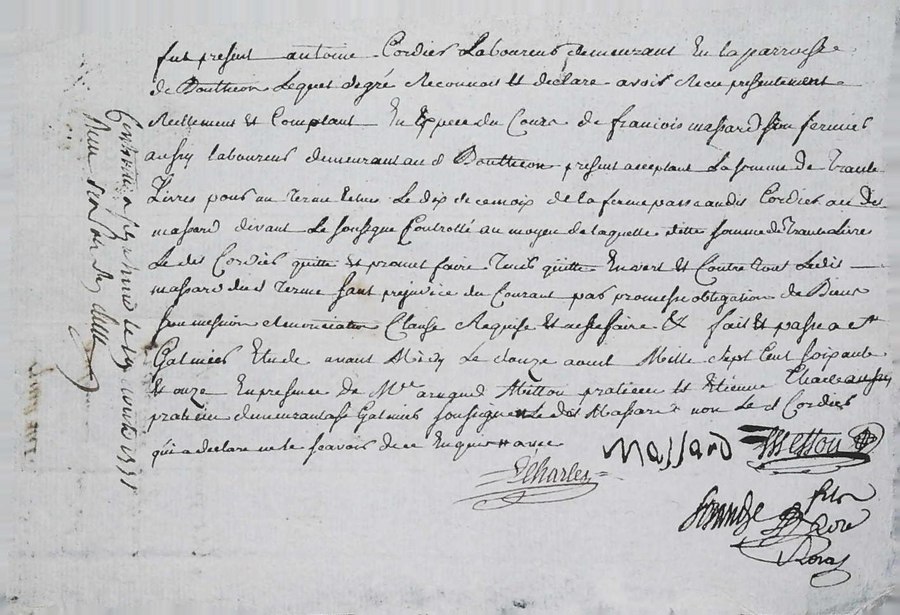 fut present antoine Cordier Laboureur demeurant En la parroisse
de Boutheon Lequel degré Reconnoit Et declare avoir Recu presentement
Reellement Et Comptant En Espece du Cours de francois massard son fermier
aussy laboureur demeurant aud Boutheon present acceptant La somme de Trante
Livres pour un Terme Echus Le dix de ce mois de la ferme passe audit Cordier au dt
massard divant Le soussigne Controllé au moyen de laquelle ditte somme de Trante Livre
Le dit Cordier quitte Et promet faire Tenir quitte Envert Et Contre tous Ledit
massard dud Terme sant prejudice du Courant par promesse obligation de Biens
soumission Renonciation Clause Requise Et nessessaire & fait Et passe a st
Galmier Etude avant Midy Le douze aout Mille Sept Cent Soixante
Et onze En presence de Me arnaud Messou praticien Et Etienne Charle aussy
praticien demeurant a st Galmier soussigne Le dit Massard non Le d Cordier
qui a declare ne le scavoir de ce Enquis avec
Massard Messou
Charles
Controllé a st le aoust 1771